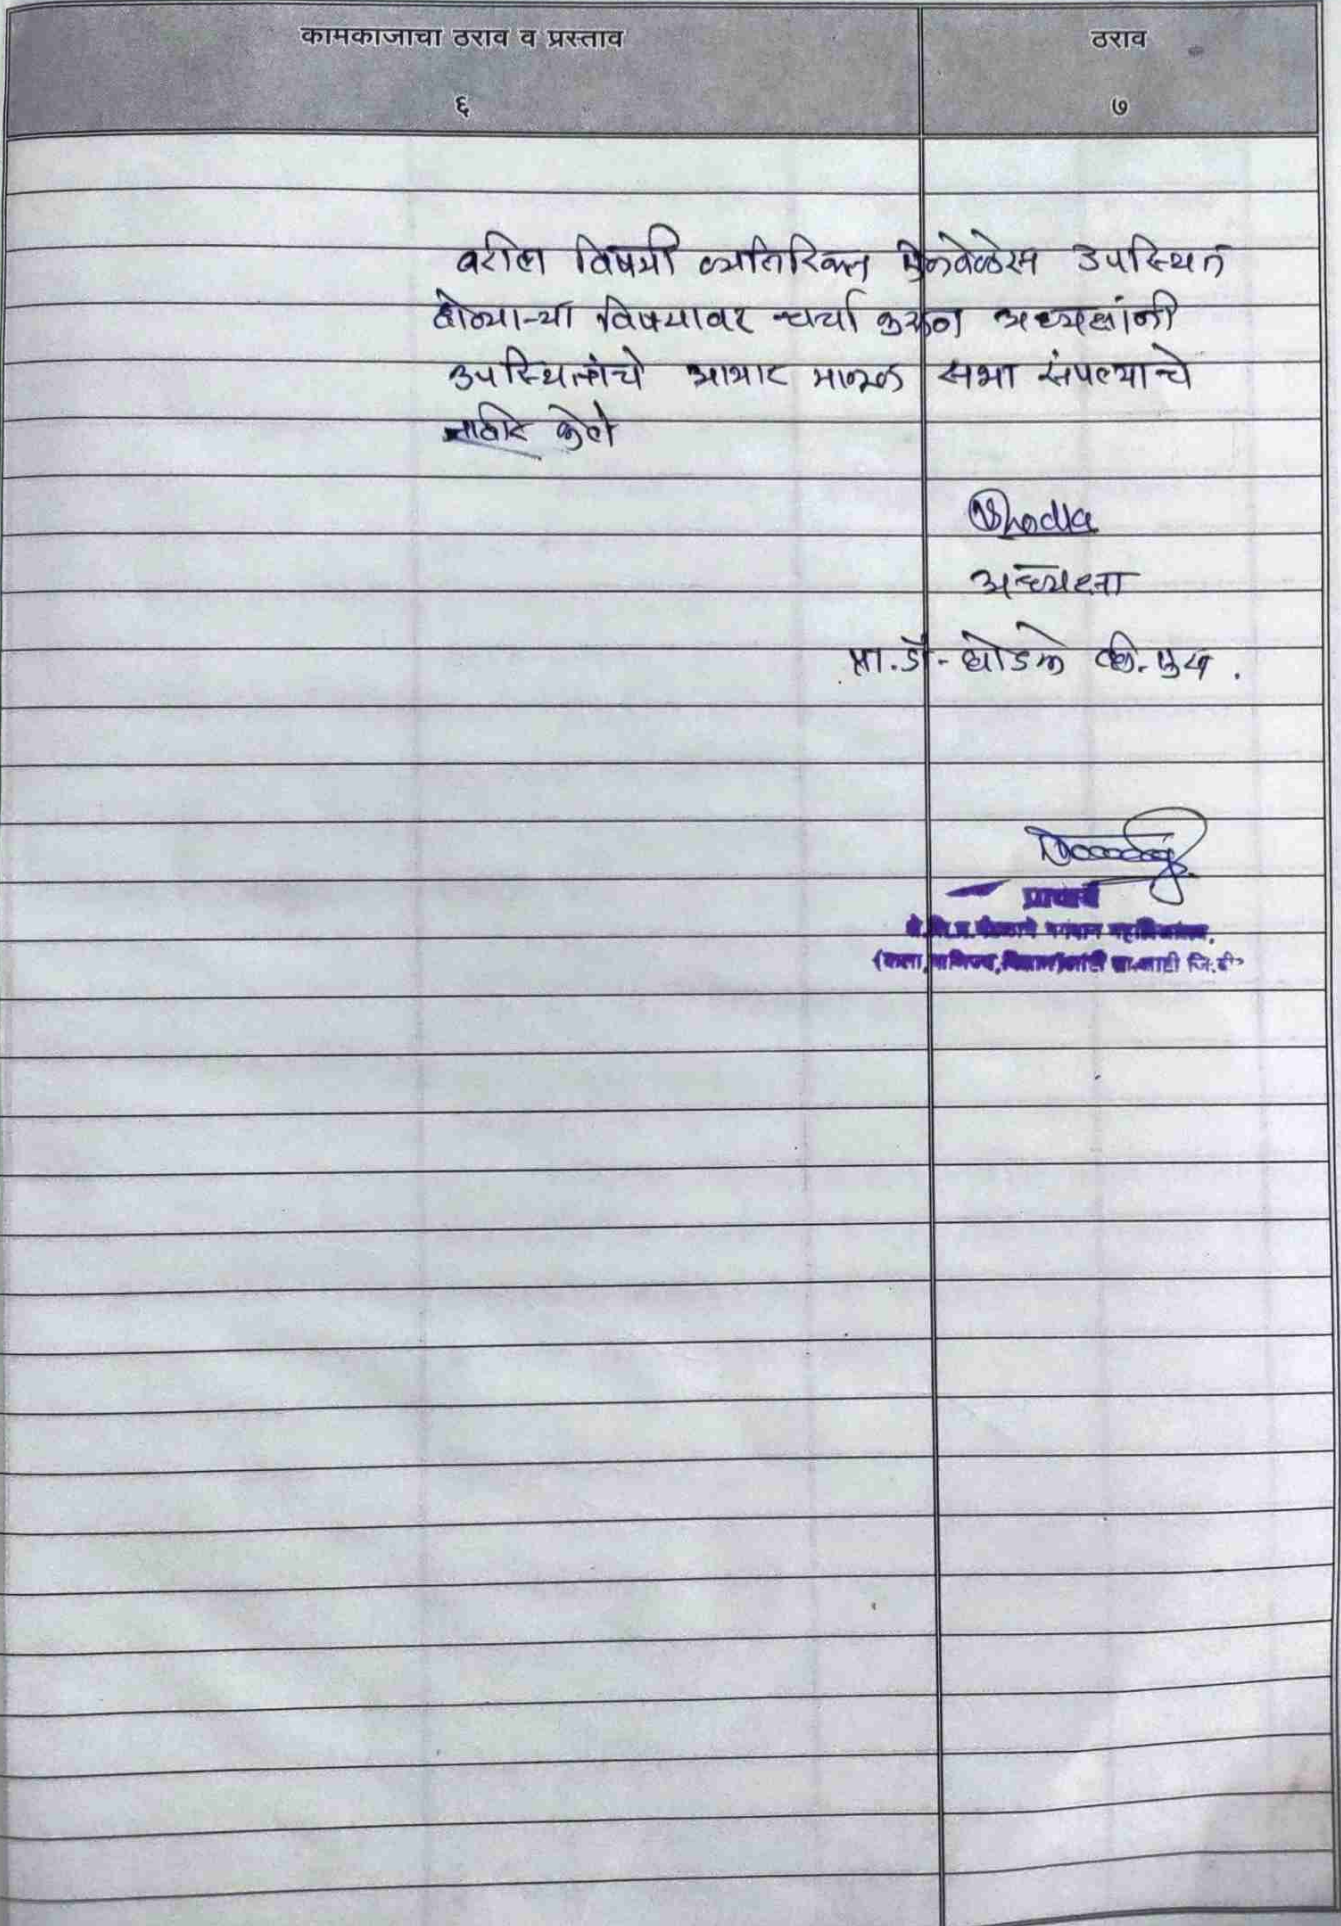 कामकाजाचा ठराव व प्रस्ताव ठराव
६ ७
वरील विषयी व्यतिरिक्त ऐनवेळेस उपस्थित
होणाऱ्या विषयावर चर्चा करून अध्यक्षांनी
उपस्थितांचे आभार मानून सभा संपल्याचे
जाहीर केले
अध्यक्षा
प्रा.डॉ. घोडके
प्राचार्य
(कला, वाणिज्य, विज्ञान)